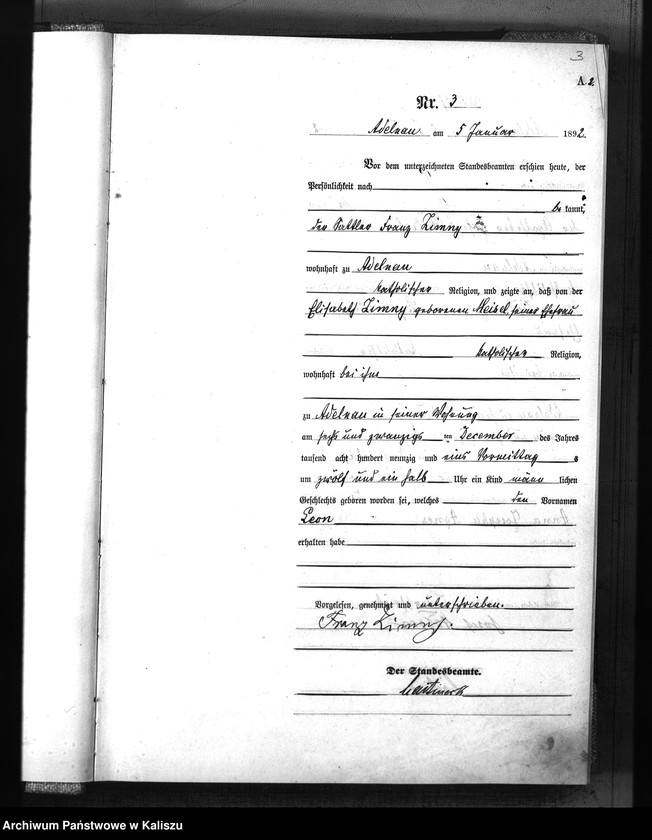 3
A 2.
Nr. 3
Adelnau am 5 Januar 1892.
Vor dem unterzeichneten Standesbeamten erschien heute, der
Persönlichkeit nach
be kannt,
der Sattler Franz Zimny
wohnhaft zu Adelnau
katholischer Religion, und zeigte an, daß von der
Elisabeth Zimny geborenen Meisel, seiner Ehefrau
katholischer Religion,
wohnhaft bei ihm
zu Adelnau in seiner Wohnung
am sechs und zwanzigs ten December des Jahres
tausend acht hundert neunzig und eins Vormittag s
um zwölf und ein halb Uhr ein Kind männ lichen
Geschlechts geboren worden sei, welches den Vornamen
Leon
erhalten habe
Vorgelesen, genehmigt und unterschrieben.
Franz Zimny.
Der Standesbeamte.
Archiwum Państwowe w Kaliszu